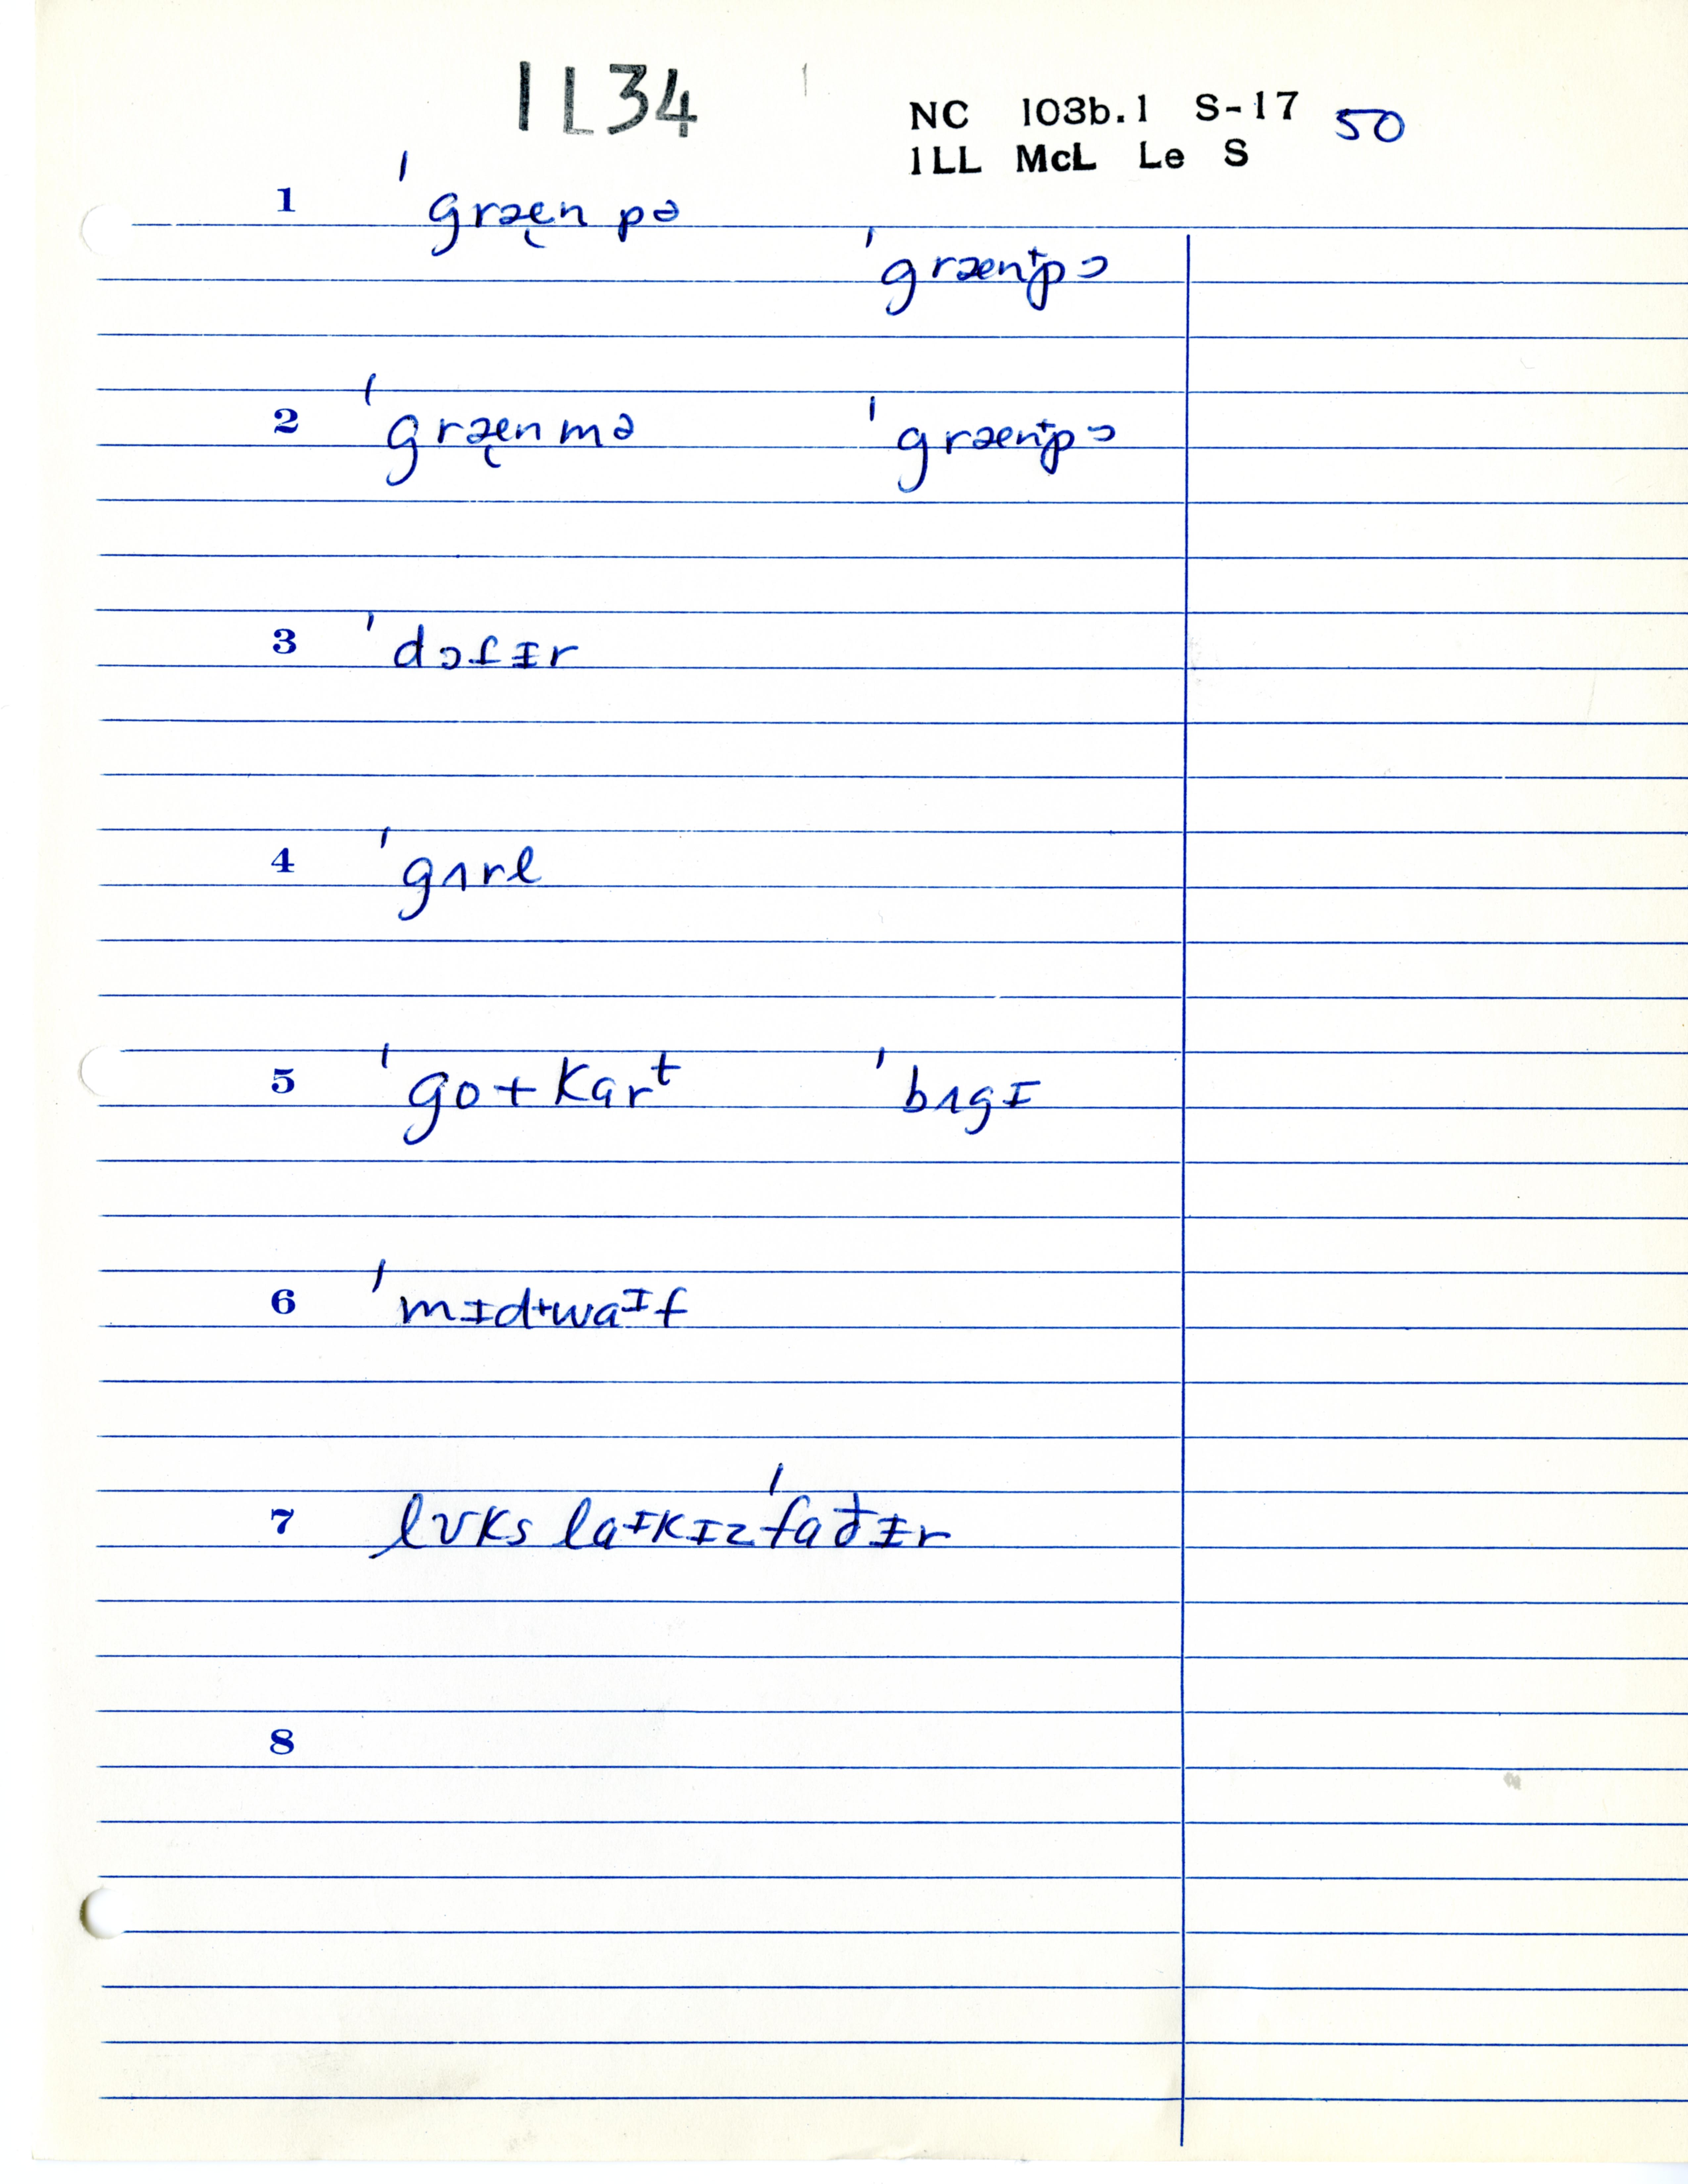 IL34
NC 103b.1 S-17 50
ILL McL Le S
1 ˈgræ̨n pə
ˈgræn+pɔ
2 ˈgræ̨nmə ˈgræn+pɔ
3 ˈdɔfɪr
4 ˈgʌrl
5 ˈgo+kart ˈbʌgɪ
6 ˈmɪd+waɪf
7 lʊks laɪkɪz ˈfaðɪr
8